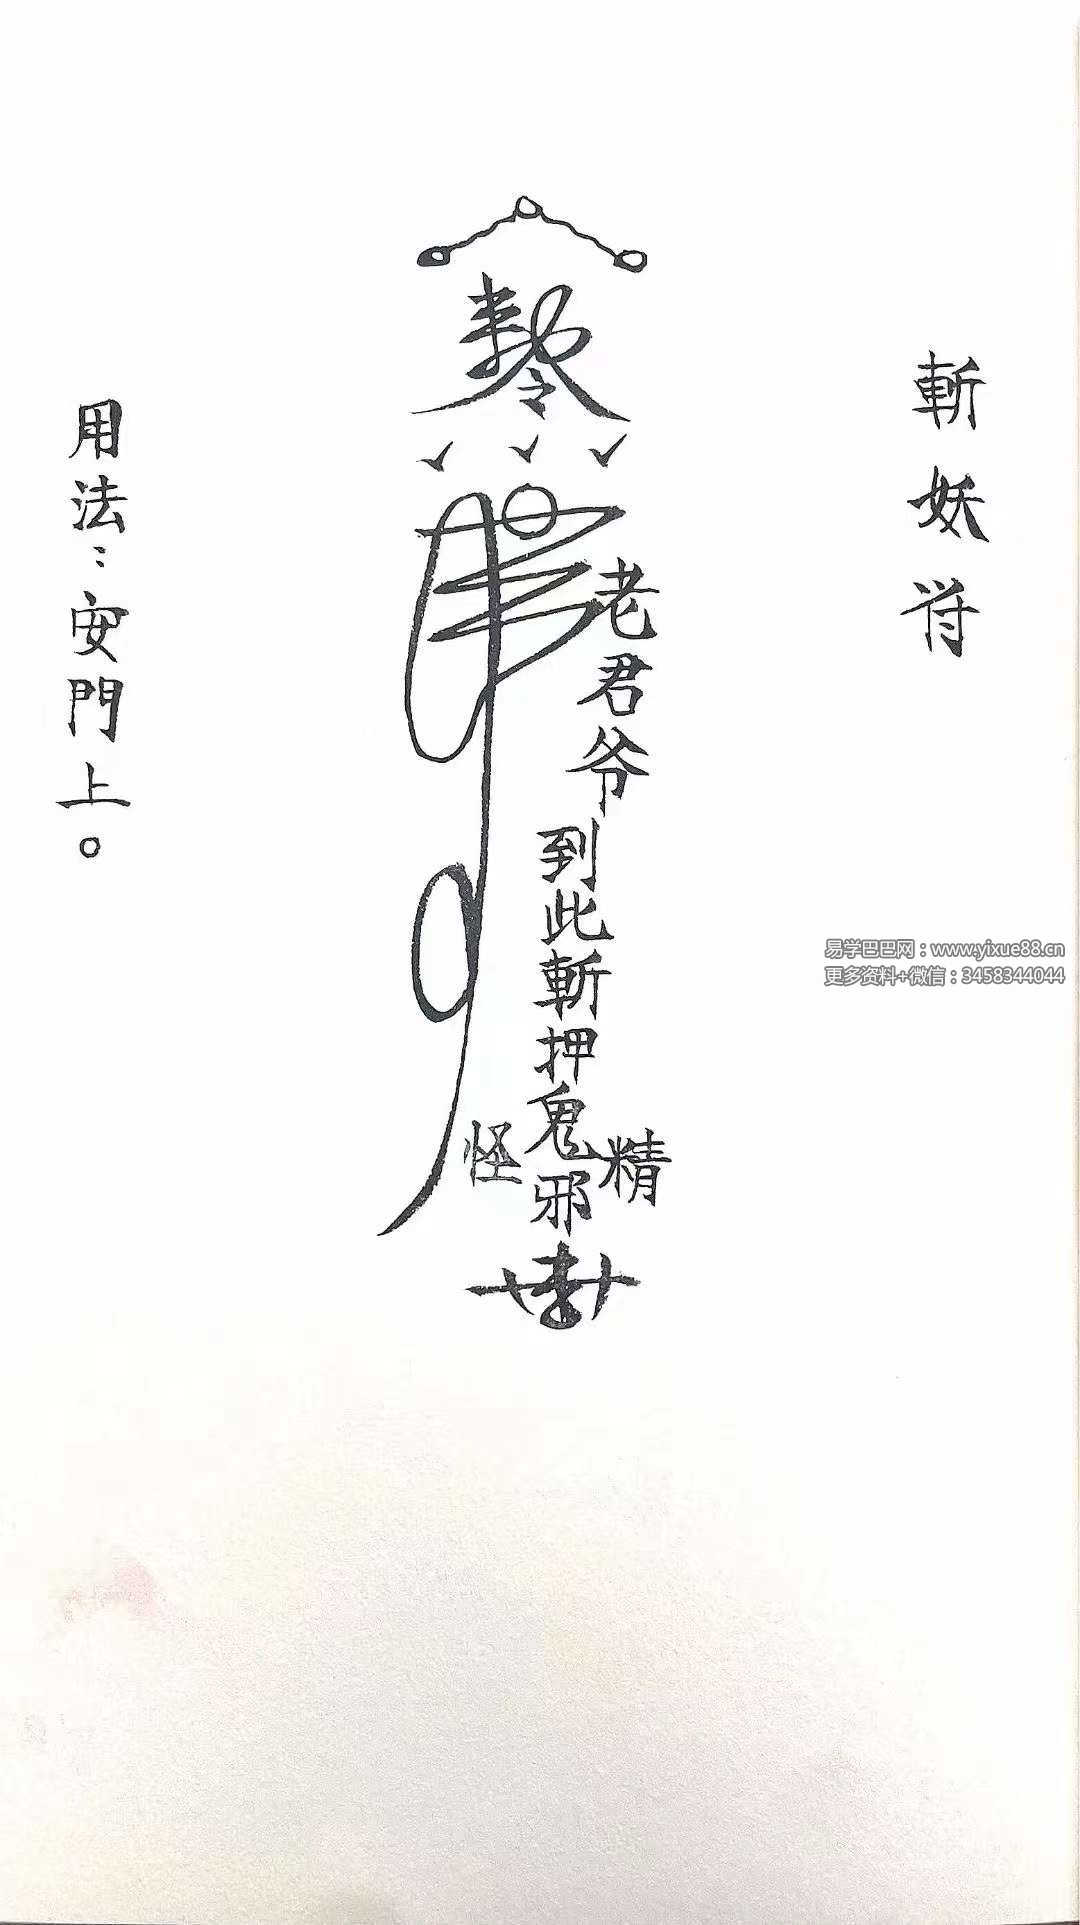 斬妖符
敕令
老君爷到此斬押鬼邪
精
怪
用法：安門上。
易学巴巴网：www.yixue88.cn
更多资料+微信：3458344044